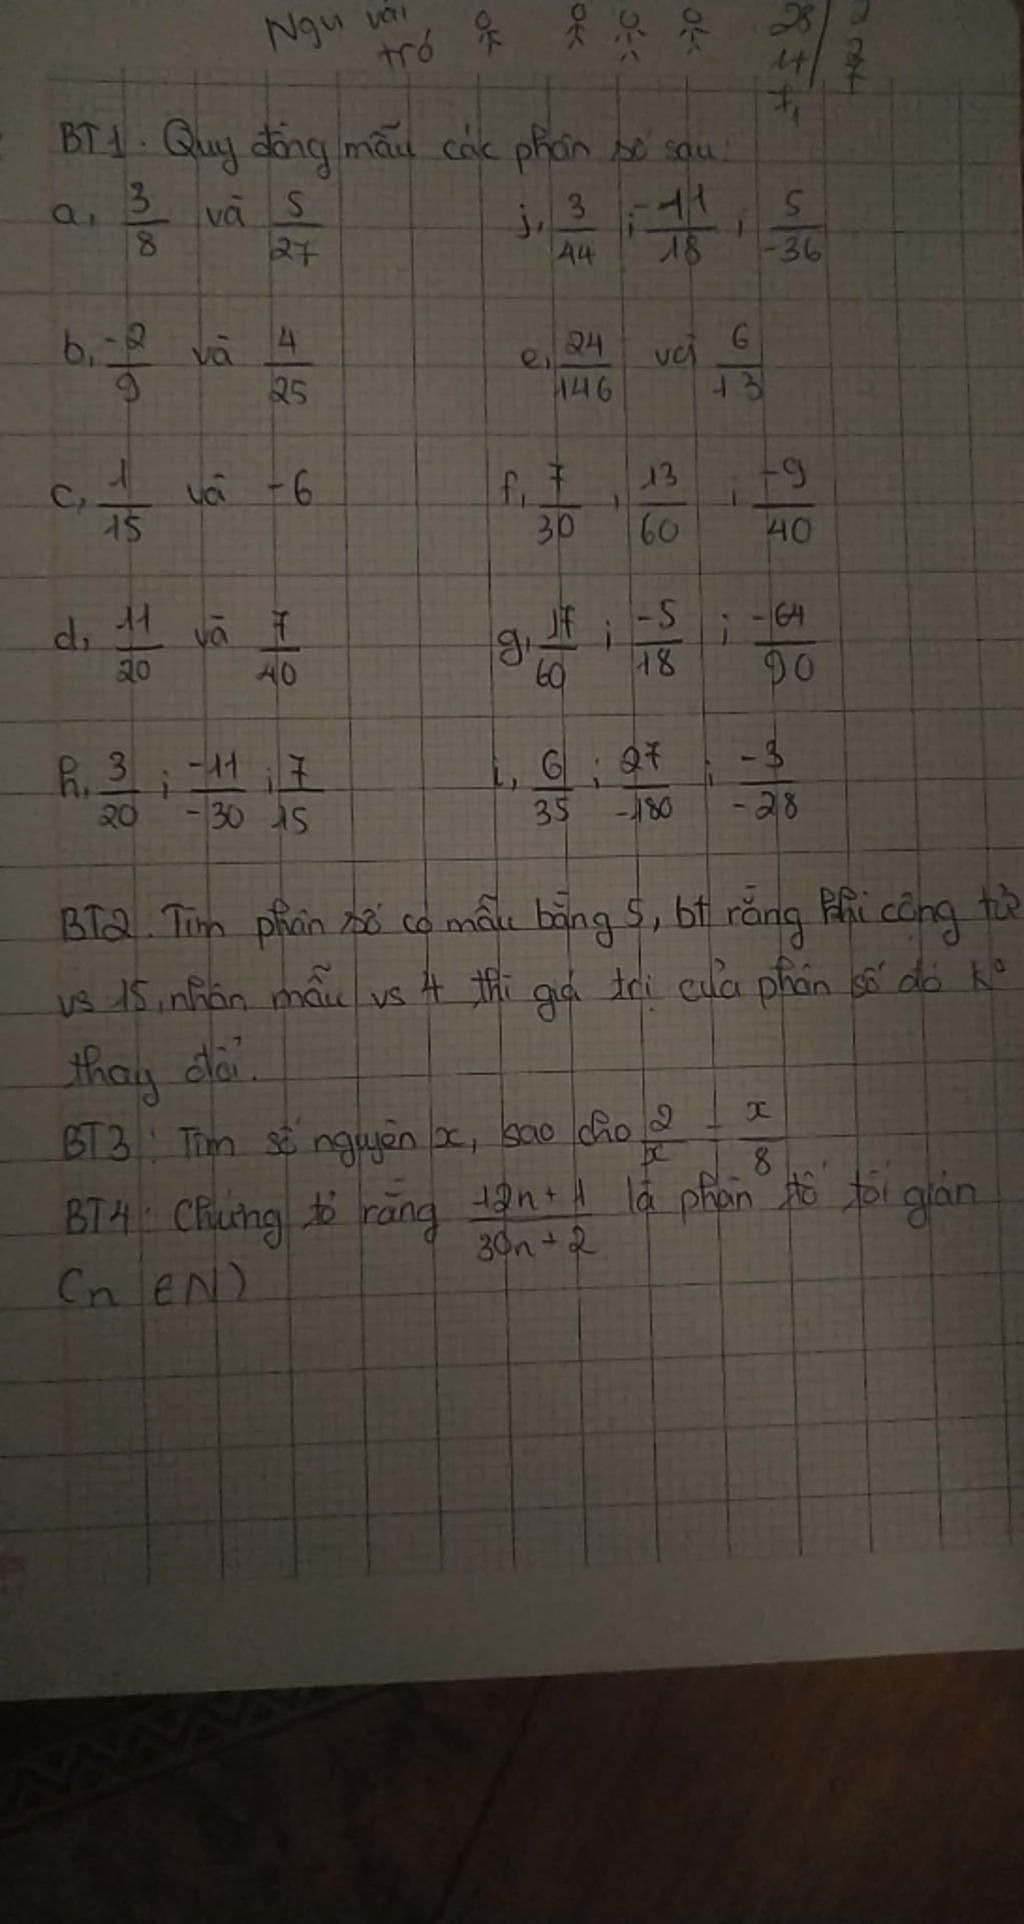 Ngu vai trò
28 2
14 2
7, 7
BT1. Quy đồng mẫu các phân số sau:
a, 3/8 và 5/27 j, 3/44 ; -11/18 ; 5/-36
b, -2/9 và 4/25 e, 24/146 và 6/13
c, 1/15 và -6 f, 7/30 , 13/60 ; -9/40
d, 11/20 và 7/40 g, 17/60 ; -5/18 ; -64/90
h, 3/20 ; -11/-30 ; 7/15 i, 6/35 ; 27/-180 ; -3/-28
BT2. Tìm phân số có mẫu bằng 5, bt rằng khi cộng tử
vs 15, nhân mẫu vs 4 thì giá trị của phân số đó k°
thay đổi.
BT3: Tìm số nguyên x, sao cho 2/x = x/8
BT4: Chứng tỏ rằng 12n+1/30n+2 là phân số tối giản
(n ∈ N)